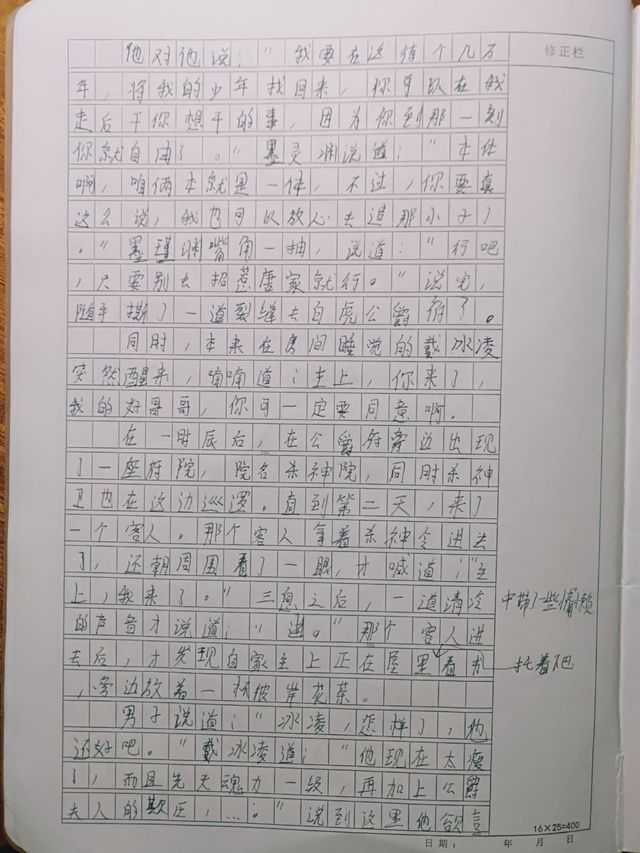 修正栏
他对他说：“我要在这待个几万
年，将我的少年找回来，你可以在我
走后干你想干的事，因为你到那一刻
你就自由了。”墨灵渊说道：“本体
啊，咱俩本就是一体，不过，你要真
这么说，我也可以放心去追那小子了
。”墨瑾渊嘴角一抽，说道：“行吧
，只要别去招惹唐家就行。”说完，
随手撕了一道裂缝去白虎公爵府了。
同时，本来在房间睡觉的戴冰凌
突然醒来，喃喃道：主上，你来了，
我的好哥哥，你可一定要同意啊。
在一时辰后，在公爵府旁边出现
了一座府院，院名杀神院，同时杀神
卫也在这边巡逻。直到第二天，来了
一个客人。那个客人拿着杀神令进去
了，还朝周围看了一眼，才喊道：“主
上，我来了。”三息之后，一道清冷
中带了一些慵懒
的声音才说道：“进。”那个客人进
去后，才发现自家主上正在屋里看书
托着下巴
，旁边放着一杯彼岸花茶。
男子说道：“冰凌，怎样了，他
还好吧。”戴冰凌道：“他现在太瘦
了，而且先天魂力一级，再加上公爵
夫人的欺压，…。”说到这里他欲言
16×25=400
日期： 年 月 日